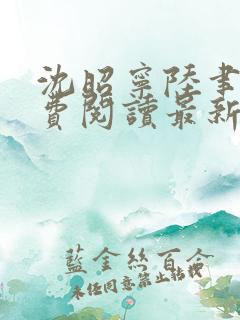 沈昭寧陸書
費閱讀最新
藍金絲百合
未經同意禁止轉載